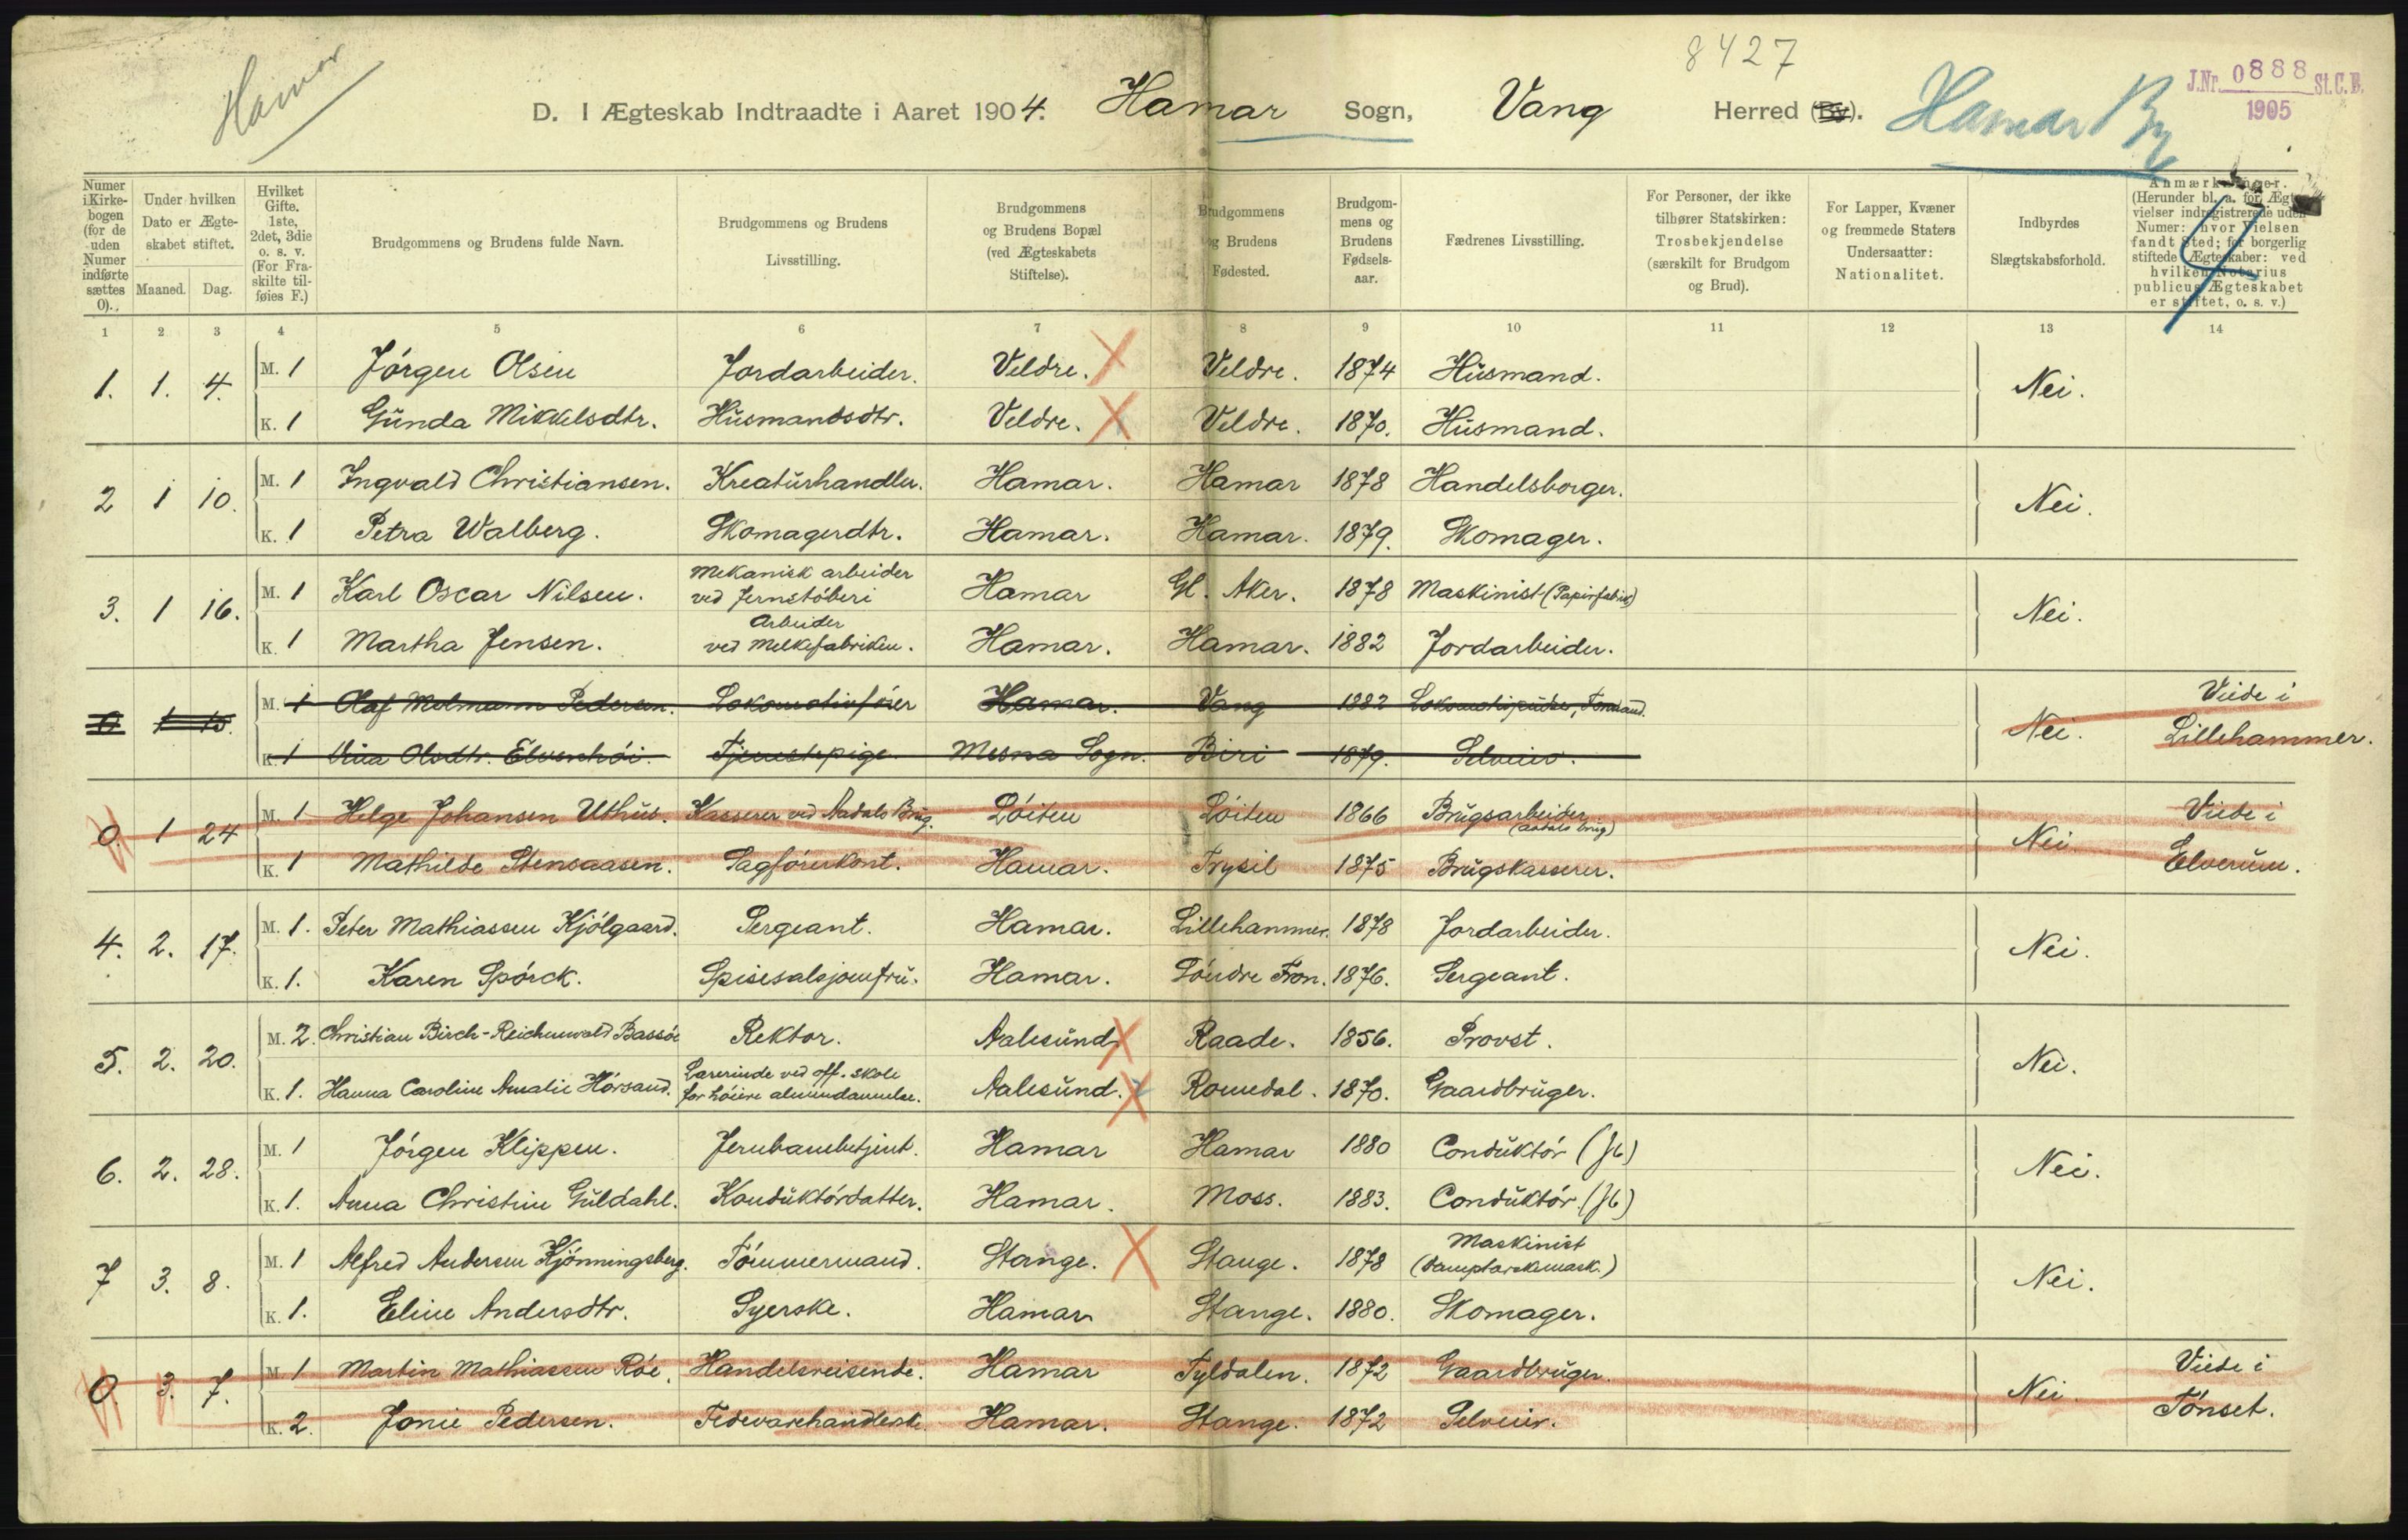 8427
Hamar
D. I Ægteskab Indtraadte i Aaret 1904. Hamar Sogn, Vang Herred (By). Hamar By
J.Nr. 0888 St.C.B.
1905
Numer i Kirkebogen (for de uden Numer indførte sættes 0).
Under hvilken Dato er Ægteskabet stiftet.
Maaned. Dag.
Hvilket Gifte. 1ste, 2det, 3die o. s. v. (For Fraskilte tilføies F.)
Brudgommens og Brudens fulde Navn.
Brudgommens og Brudens Livsstilling.
Brudgommens og Brudens Bopæl (ved Ægteskabets Stiftelse).
Brudgommens og Brudens Fødested.
Brudgommens og Brudens Fødselsaar.
Fædrenes Livsstilling.
For Personer, der ikke tilhører Statskirken: Trosbekjendelse (særskilt for Brudgom og Brud).
For Lapper, Kvæner og fremmede Staters Undersaatter: Nationalitet.
Indbyrdes Slægtskabsforhold.
Anmærkninger. (Herunder bl. a. for Ægtevielser indregistrerede uden Numer: hvor Vielsen fandt Sted; for borgerlig stiftede Ægteskaber: ved hvilken Notarius publicus Ægteskabet er stiftet, o. s. v.)
1 2 3 4 5 6 7 8 9 10 11 12 13 14
1. 1. 4. M. 1 Jórgen Olsen Jordarbeider. Veldre. Veldre. 1874 Húsmand. Nei.
K. 1 Gúnda Mikkelsdtr. Húsmandsdtr. Veldre. Veldre. 1870. Húsmand.
2 1 10. M. 1 Ingvald Christiansen. Kreatúrhandler. Hamar. Hamar 1878 Handelsborger. Nei.
K. 1 Petra Walberg. Skomagerdtr. Hamar. Hamar. 1879. Skomager.
3. 1 16. M. 1 Karl Oscar Nilsen. Mekanisk arbeider ved Jernstóberi Hamar Gl. Aker. 1878 Maskinist (Papirfabrik) Nei.
K. 1 Martha Jensen. Arbeider ved Melkefabriken. Hamar. Hamar. 1882 Jordarbeider.
0 1 M. 1 Olaf Pedersen. Lokomotivfórer Hamar. Vang 1882 Nei. Viede i Lillehammer.
K. 1 Olsdtr. Elvenhói. Tjenestepige Mesna Sogn. Biri 1879. Selveier.
0. 1 24 M. 1 Helge Johansen Uthús. Kasserer ved Aadals Brúg. Lóiten Lóiten 1866 Brúgsarbeider (Aadals brúg) Nei Viede i Elverúm.
K. 1 Mathilde Stensaasen. Sagfórerkont. Hamar. Trysil 1875 Brúgskasserer.
4. 2. 17. M. 1. Peter Mathiassen Kjólgaard. Sergeant. Hamar. Lillehammer. 1878 Jordarbeider. Nei.
K. 1. Karen Spórck. Spisesalsjomfrú. Hamar. Sóndre Fron. 1876. Sergeant.
5. 2. 20. M. 2. Christian Birch-Reichenwald Bassóe Rektor. Aalesúnd Raade. 1856. Provst. Nei.
K. 1. Hanna Caroline Amalie Hórsand. Lærerinde ved off. skole for hóiere almendannelse. Aalesúnd. Romedal. 1870. Gaardbrúger.
6. 2. 28. M. 1 Jórgen Klippen. Jernbanebetjent. Hamar Hamar 1880 Condúktór (Jb) Nei.
K. 1. Anna Christine Gúldahl. Kondúktórdatter. Hamar. Moss. 1883. Condúktór. (Jb)
7 3. 8. M. 1 Alfred Andersen Kjónningsberg. Tómmermand. Stange. Stange. 1878 Maskinist (Damptærskemask.) Nei.
K. 1. Eline Andersdtr. Syerske. Hamar Stange. 1880. Skomager.
0. 3. 7. M. 1 Martin Mathiassen Róe. Handelsreisende. Hamar Tyldalen. 1872 Gaardbrúger. Nei. Viede i Tónset.
K. 2. Jonie Pedersen. Fedevarehandlerske. Hamar. Stange. 1872 Selveier.